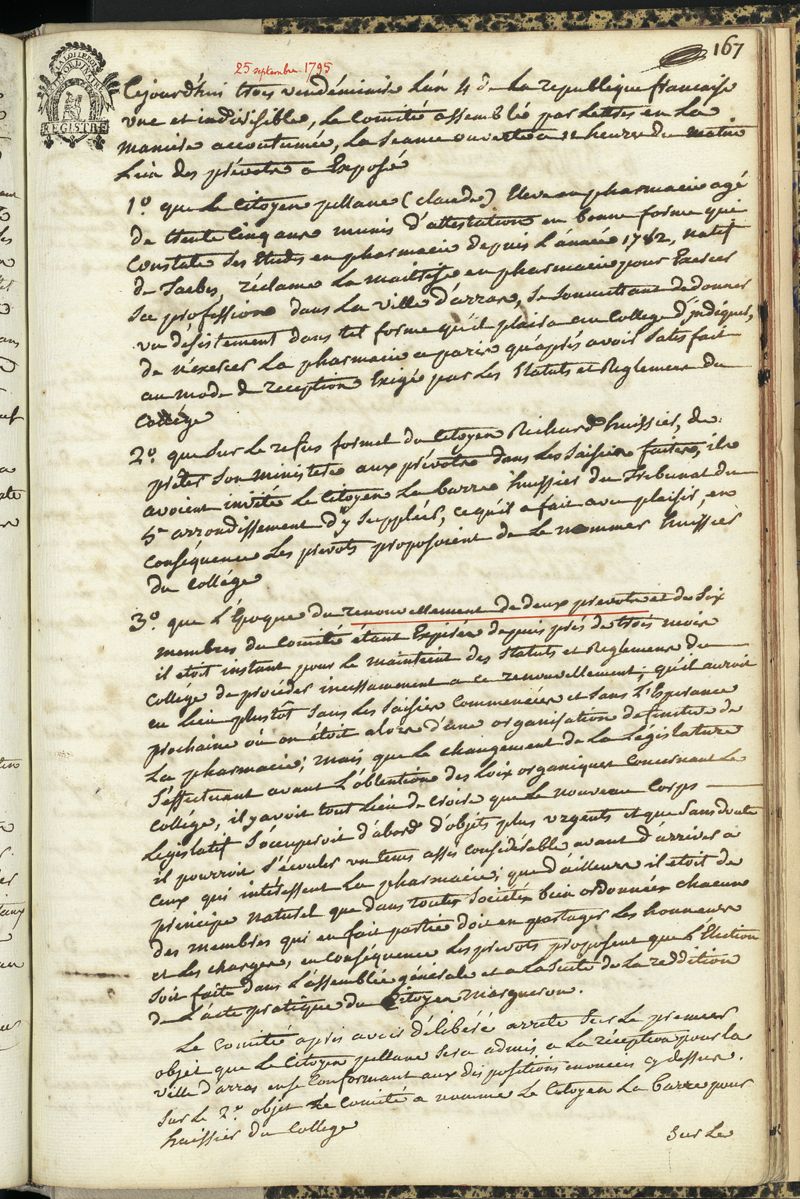 167
25 septembre 1795
REGISTRE
Cejourd'hui trois vendémiaire L'an 4 de La republique francaise
une et indivisible, Le Comité assemblé par Lettres en La
maniere accoutumée, La Seance ouverte a heures du matin
L'un des prévots a Exposé
1º. que Le Citoyen jullane (claude) Eleve en pharmacie agé
de trente Cinq ans munis d'attestation en bonne forme qui
Constate Ses Etudes en pharmacie depuis L'année 1782, natif
de réclame La maitrise en pharmacie pour Exercer
Sa profession dans La ville d'arras, Se Soumettant de donner
un désistement dans tel forme qu'il plaira au College d'indiquer,
de n'exercer La pharmacie a paris qu'après avoir Satisfait
au mode de reception Exigé par Les Statuts et Reglemens du
Collége
2º. que Sur Le refus formel du Citoyen Richard huissier, de
prêter Son Ministere aux prévots dans Les Saisies faites, ils
avoient invité Le Citoyen La barre huissier du Tribunal du
5e arrondissement d'y Suppléer, ce qu'il a fait avec plaisir, en
Conséquence Les prevots proposoient de Le nommer huissier
du Collége
3º. que L'Epoque du renouvellement de deux prevots et de Six
membres du Comité étant Expirée depuis près de trois mois
il étoit instant pour Le maintient des Statuts et Reglemens du
Collége de procéder incessamment a ce renouvellement; qu'il auroit
eu Lieu plustôt Sans Les Saisies Commencées et Sans L'Esperance
prochaine où on étoit alors d'une organisation definitive de
La pharmacie; mais que Le changement de La Législature
S'effectuant avant L'obtention des Loix organiques Concernant Le
Collége, il y avoit tout Lieu de Croire que Le nouveau Corps
Législatif S'occuperoit d'abord d'objets plus urgents et que Sans doute
il pourroit S'écouler un tems assés considérable avant d'arriver à
Ceux qui intéressent La pharmacie; que d'ailleurs il étoit de
principe naturel que dans toutes Sociétés bien ordonnées chacune
des membres qui en fait partie doit en partager Les honneurs
et Les charges, en conséquence Les prevots proposent que L'Election
Soit faite dans L'assemblée générale et a La Suite de La reddition
de L'acte pratique du Citoyen Margueron.
Le Comité après avoir délibéré arrete Sur Le premier
objet que Le Citoyen jullane Sera admis a La réception pour La
ville d'arras en Se Conformant aux dispositions enoncées cy dessus.
Sur Le 2º. objet Le Comité a nommé Le Citoyen La barre pour
huissier du College
Sur Le